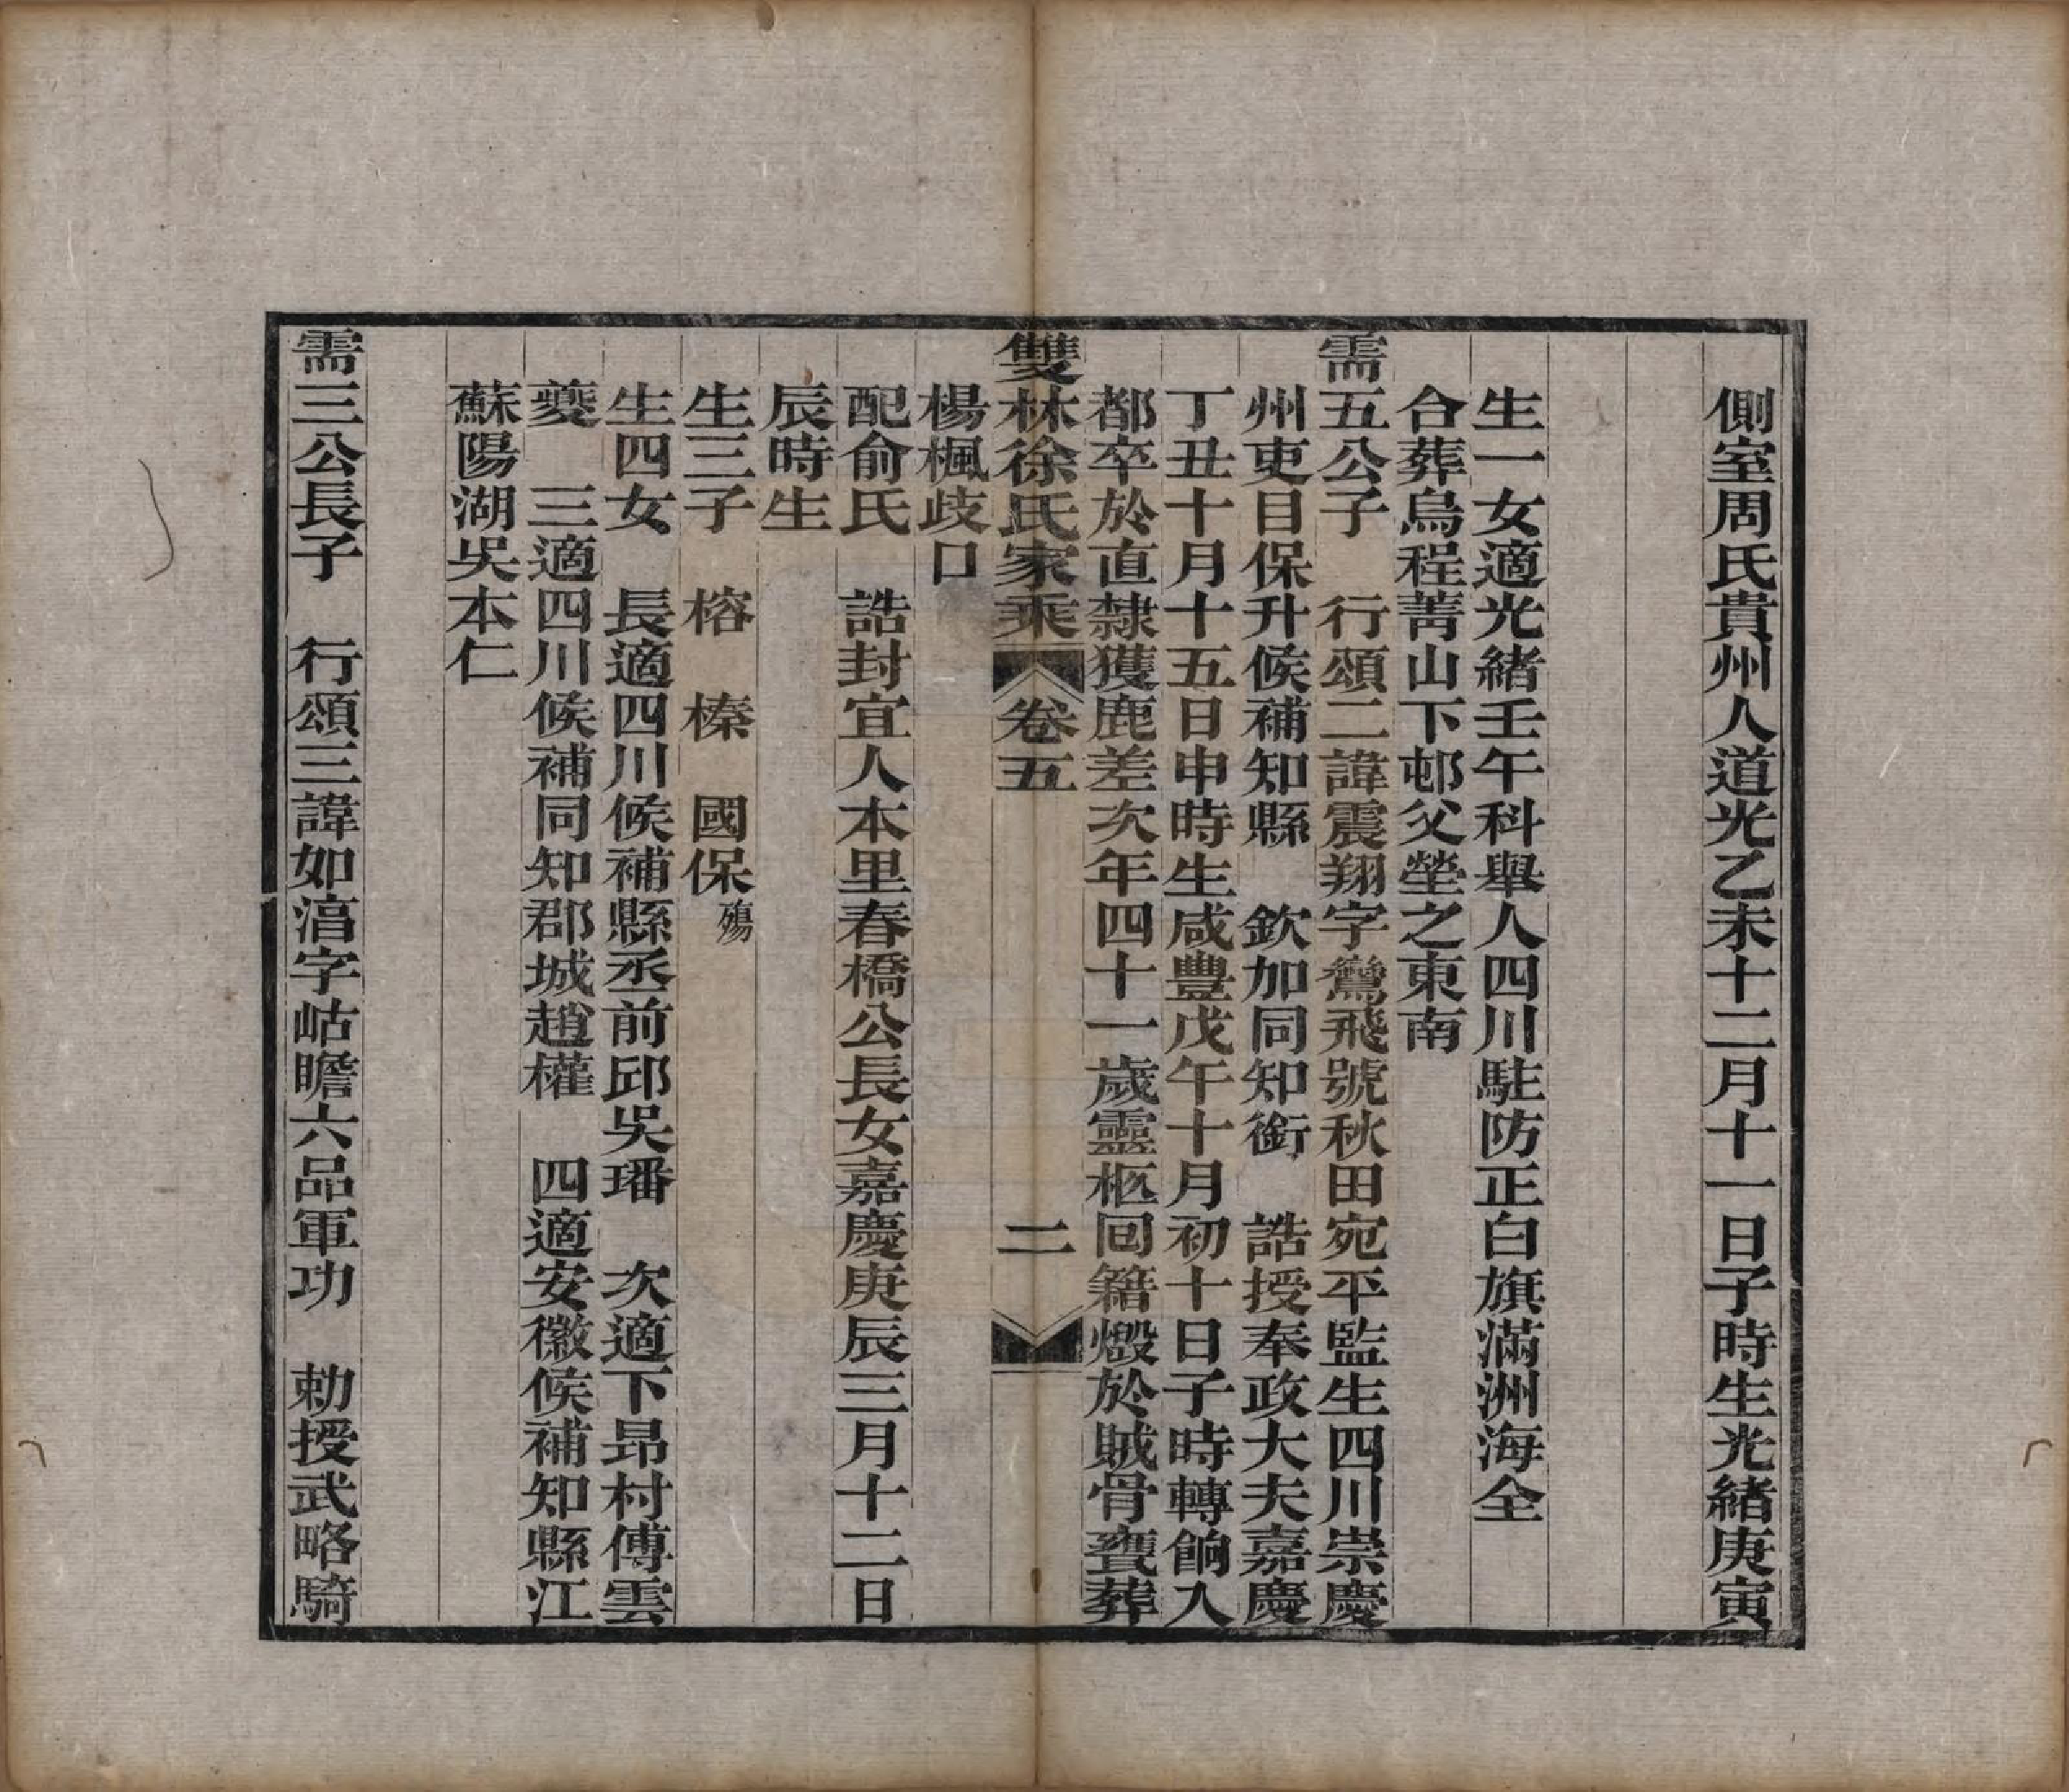 側室周氏貴州人道光乙未十二月十一日子時生光緒庚寅
生一女適光緒壬午科舉人四川駐防正白旗滿洲海全
合葬烏程菁山下邨父塋之東南
需五公子　行頌二諱震翔字鶯飛號秋田宛平監生四川崇慶
州吏目保升候補知縣　欽加同知銜　誥授奉政大夫嘉慶
丁丑十月十五日申時生咸豐戊午十月初十日子時轉餉入
都卒於直隸獲鹿差次年四十一歲靈柩回籍燬於賊骨甕葬
雙林徐氏家乘　卷五　二
楊楓歧口
配俞氏　誥封宜人本里春橋公長女嘉慶庚辰三月十二日
辰時生
生三子　榕　榛　國保殤
生四女　長適四川候補縣丞前邱吳璠　次適下昂村傅雲
夔　三適四川候補同知郡城趙權　四適安徽候補知縣江
蘇陽湖吳本仁
需三公長子　行頌三諱如湻字岵瞻六品軍功　勅授武略騎